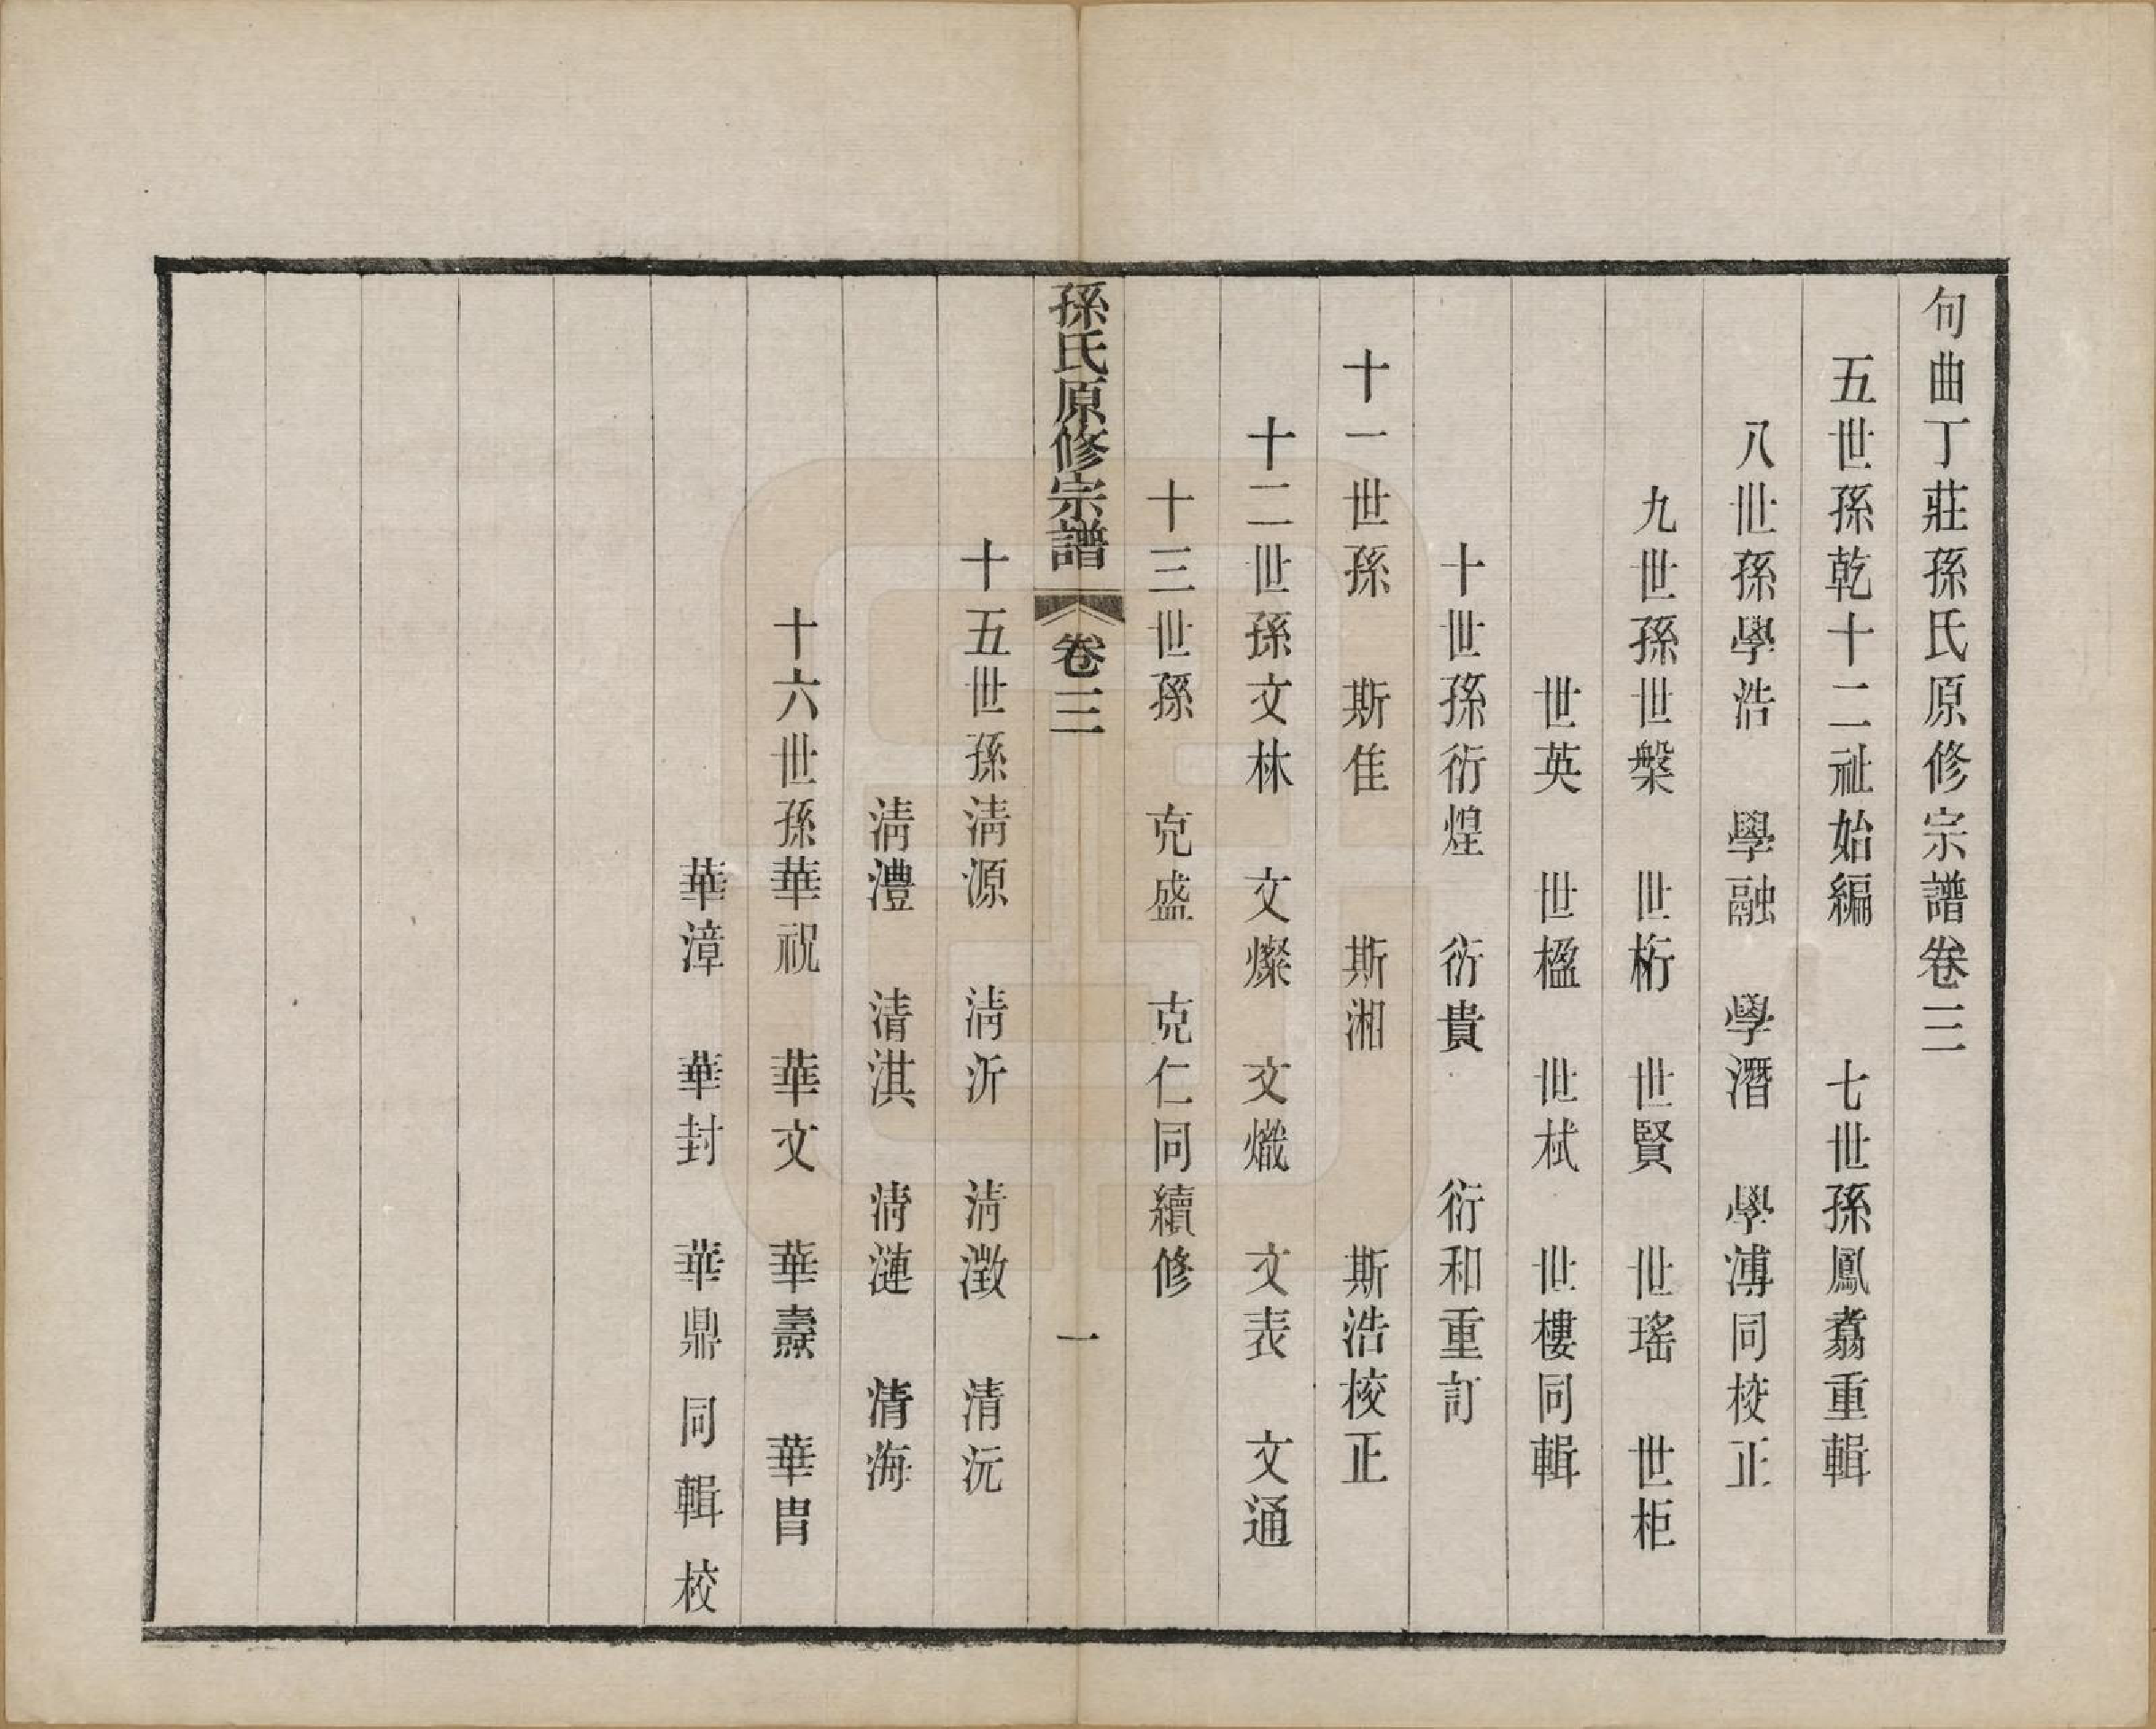 句曲丁莊孫氏原修宗譜卷三
五世孫乾十二祉始編 七世孫鳳翥重輯
八世孫學浩 學融 學潛 學溥同校正
九世孫世槃 世桁 世賢 世瑤 世柜
世英 世楹 世栻 世樓同輯
十世孫衍煌 衍貴 衍和重訂
十一世孫 斯佳 斯湘 斯浩校正
十二世孫文林 文燦 文熾 文表 文通
十三世孫 克盛 克仁同續修
孫氏原修宗譜 卷三 一
十五世孫淸源 淸沂 淸澂 清沅
淸澧 清淇 淸漣 清海
十六世孫華祝 華文 華燾 華冑
華漳 華封 華鼎同輯校